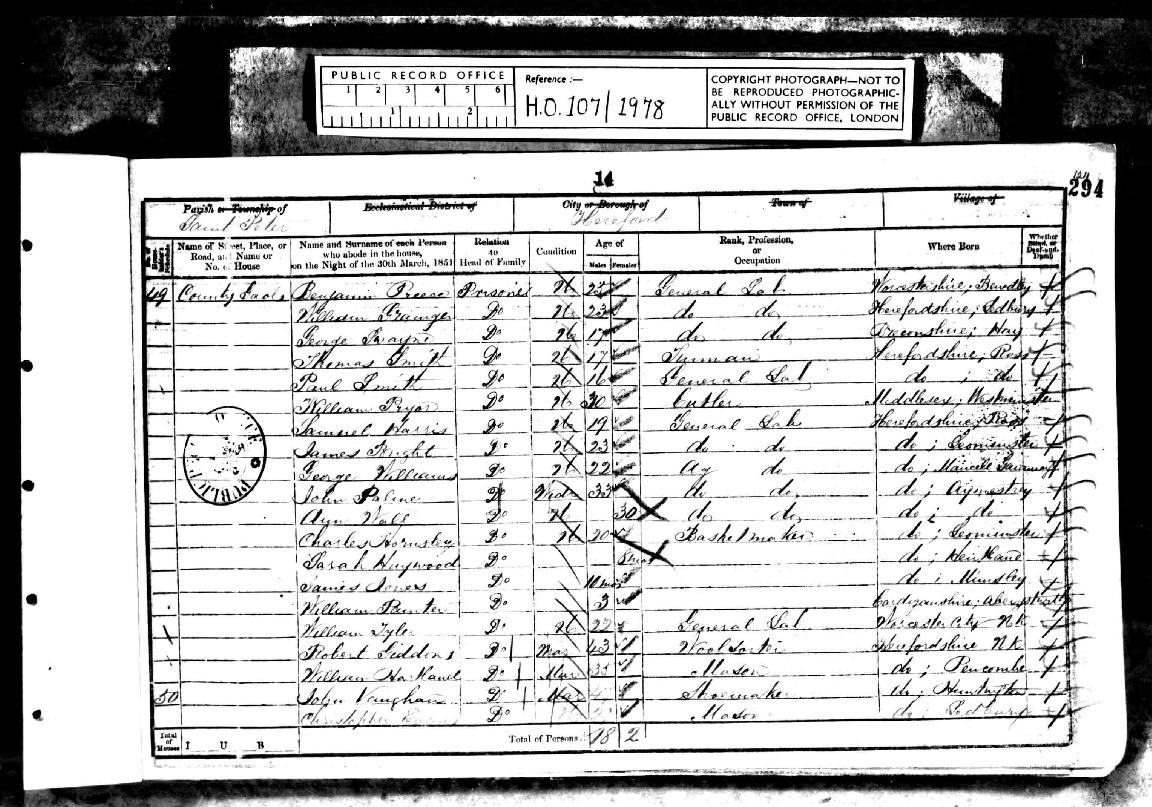 PUBLIC RECORD OFFICE
1 2 3 4 5 6
1 2
Reference :—
H.O. 107/1978
COPYRIGHT PHOTOGRAPH—NOT TO
BE REPRODUCED PHOTOGRAPHIC-
ALLY WITHOUT PERMISSION OF THE
PUBLIC RECORD OFFICE, LONDON
14
294
Parish or Township of
Saint Peter
Ecclesiastical District of
City or Borough of
Hereford
Town of
Village of
Name of Street, Place, or Road, and Name or No. of House
Name and Surname of each Person who abode in the house, on the Night of the 30th March, 1851
Relation to Head of Family
Condition
Age of
Males Females
Rank, Profession, or Occupation
Where Born
Whether Blind, or Deaf-and-Dumb
49 County Benjamin Preece Prisoner General Lab Worcestershire; Bewdley
William Grainger Do 23 do do Herefordshire; Ledbury
George Do 17 do do Breconshire; Hay
Thomas Smith Do 17 Herefordshire; Ross
Paul Smith Do 16 General Lab do ; do
William Pryor Do 30 Cutler Middlesex; Westminster
Samuel Harris Do 19 General Lab Herefordshire; Ross
James Do 23 do do do ; Leominster
George Williams Do 22 Ag do do ;
John Do Widr 33 do do do ; Aymestrey
Ann Wall Do 30 do do do ; do
Charles Hornsley Do 20 Basketmaker do ; Leominster
Sarah Haywood Do 8 mos do ;
James Jones Do 10 mos do ;
William Painter Do 3 Cardiganshire;
William Tyler Do General Lab Worcester City N.K
Robert Giddins Do Mar 43 Wool Sorter Herefordshire N.K
William Do Mar 35 Mason do ; Pencombe
50 John Vaughan Do Mar Shoemaker do ; Huntington
Christopher Do Mason do ;
Total of Houses
I U B
Total of Persons 18 2